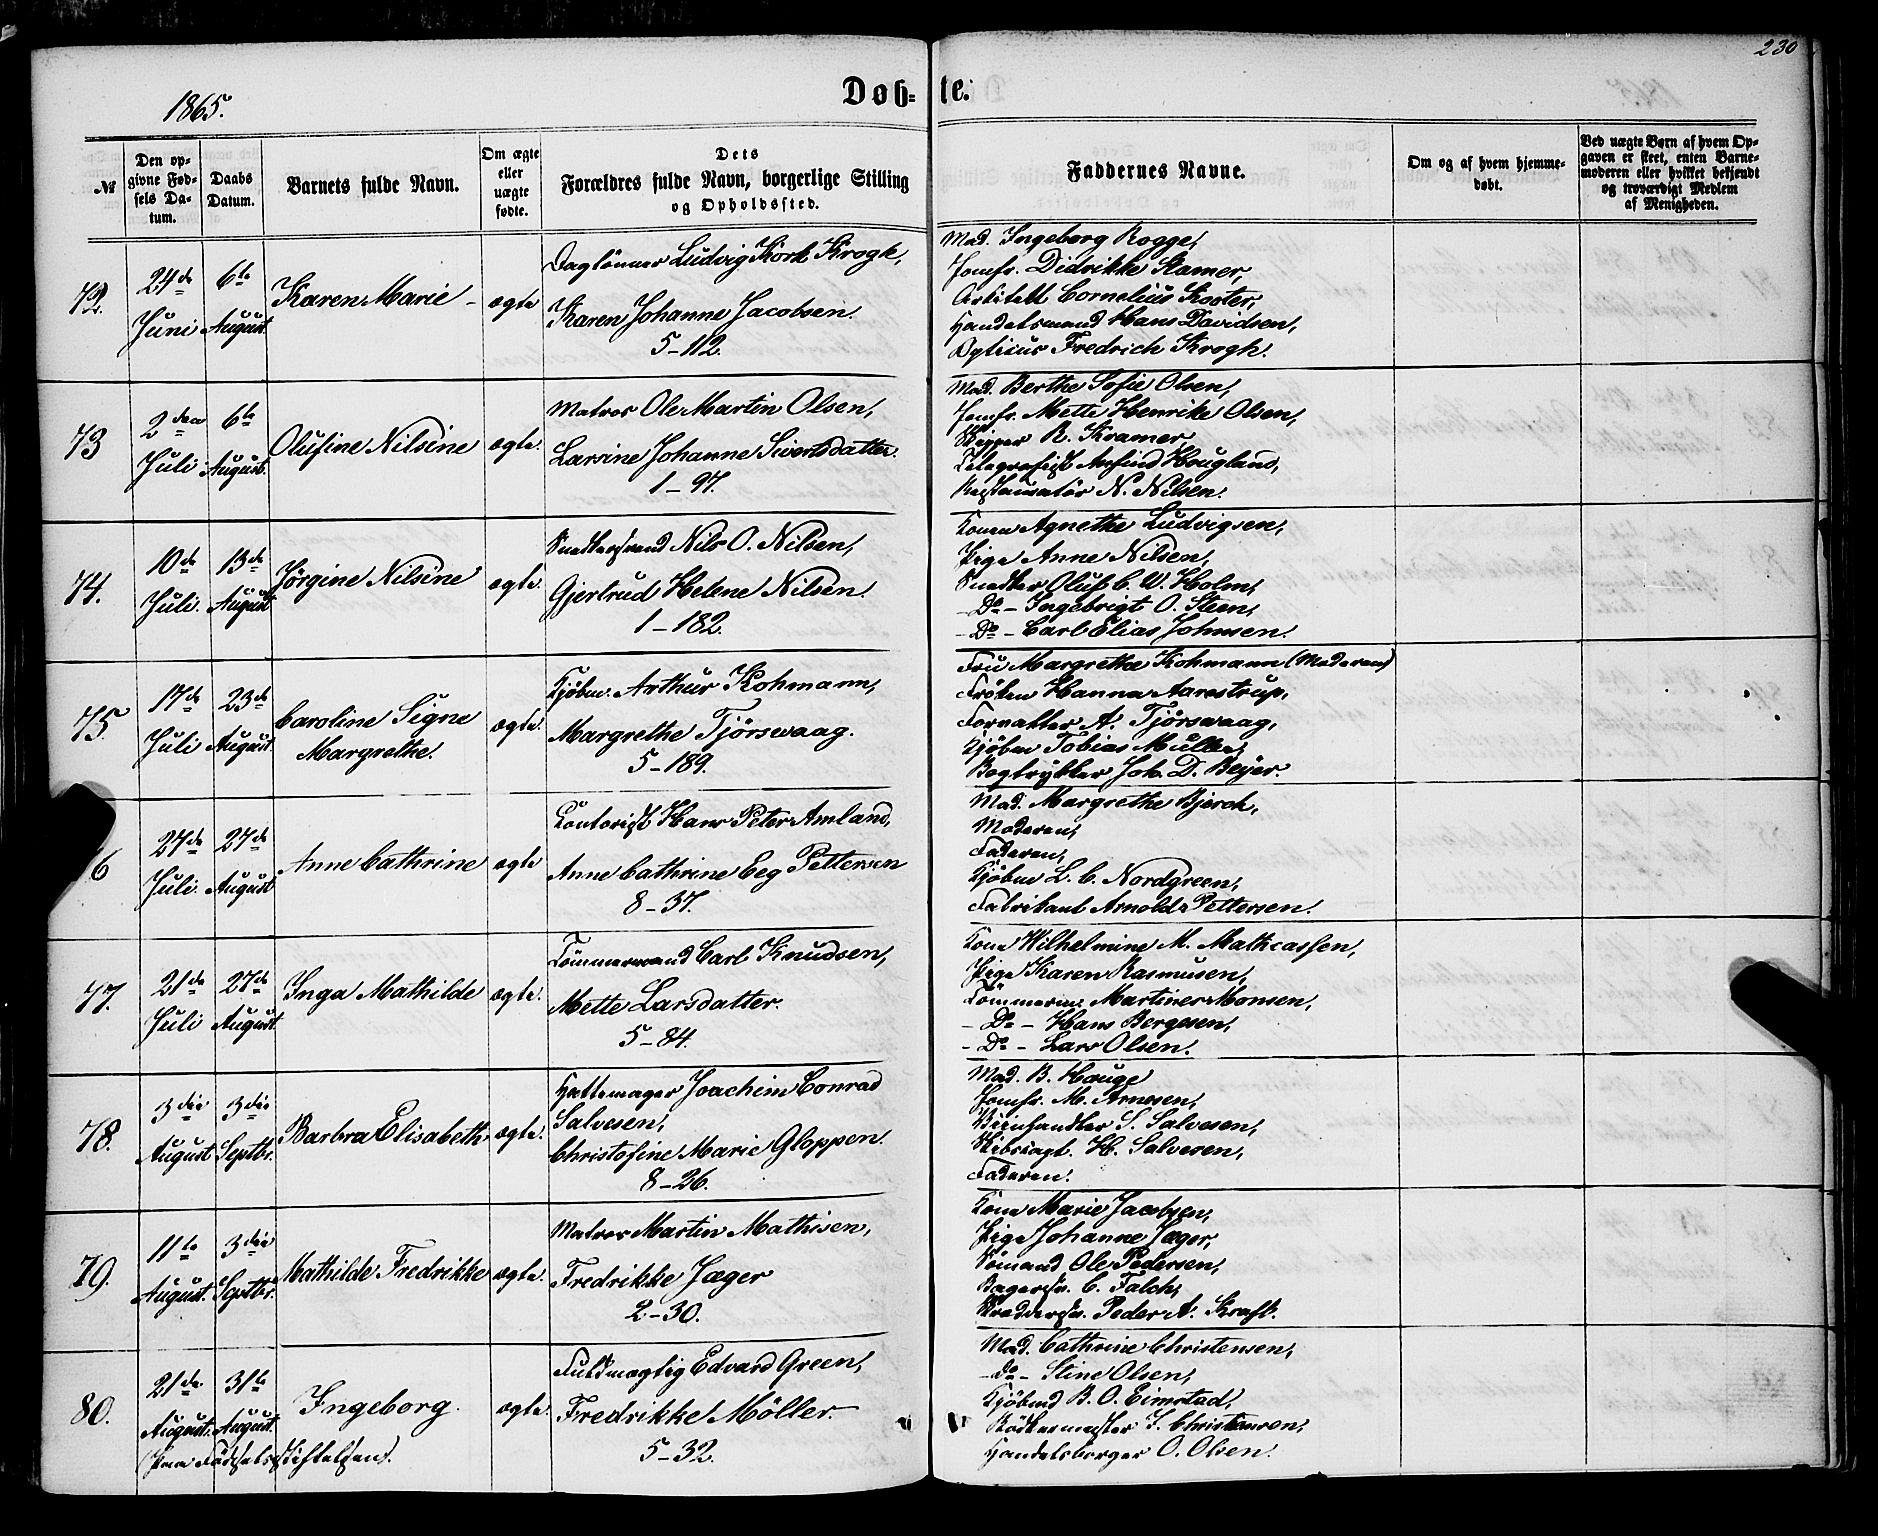 230
1865.
Døb- te.
№
Den op-
givne Fød-
sels Da-
tum.
Daabs
Datum.
Barnets fulde Navn.
Om ægte
eller
uægte
fødte.
Dets
Forældres fulde Navn, borgerlige Stilling
og Opholdssted.
Faddernes Navne.
Om og af hvem hjemme-
døbt.
Ved uægte Børn af hvem Op-
gaven er skeet, enten Barne-
moderen eller hvilket bekjendt
og troværdigt Medlem
af Menigheden.
72.
24de
Juni
6te
August
Karen Marie -
ægte
Daglønner Ludvig Kort Krogh,
Karen Johanne Jacobsen.
5-112.
Mad. Ingeborg Rogge,
Jomfr. Didrikke Kamer,
Arkitekt Cornelius Kooter,
Handelsmand Hans Davidsen,
Opticus Fredrich Krogh.
73
2den
Juli
6te
August.
Olufine Nilsine
ægte.
Matros Ole Martin Olsen,
Larsine Johanne Sivertsdatter.
1-97.
Mad. Berthe Sofie Olsen,
Jomfr. Mette Henrike Olsen,
Skipper R. Kramer,
Telegrafist Arfind Hougland,
Restauratør N. Nilsen.
74.
10de
Juli.
13de
August
Jørgine Nilsine
ægte.
Snedkersvend Nils O. Nilsen,
Gjertrud Helene Nilsen.
1-182.
Kone Agnethe Ludvigsen,
Pige Anne Nilsen,
Snedker Oluf C. W. Holm,
-Do- Ingebrigt O. Steen,
-Do- Carl Elias Johnsen.
75.
17de
Juli
23de
August.
Caroline Signe
Margrethe.
ægte.
Kjøbm. Arthur Kohmann,
Margrethe Tjörswaag.
5-189.
Fru Margrethe Kohmann (Moderen)
Frøken Hanna Aarestrup,
Forvalter A. Tjörswaag,
Kjøbm Tobias Müller,
Bogtrykker Joh. D. Beyer.
6
27de
Juli.
27de
August
Anne Cathrine
ægte
Kontorist Hans Peter Amland,
Anne Cathrine Eeg Pettersen
8-37.
Mad. Margrethe Bjerck,
Moderen,
Faderen,
Kjøbm L. C. Nordgreen,
Fabrikant Arnold Pettersen.
77.
21de
Juli
27de
August.
Inga Mathilde
ægte.
Tømmermand Carl Knudsen,
Mette Larsdatter.
5-84.
Kone Wilhelmine M. Mathiassen,
Pige Karen Rasmusen,
Tømmerm. Martines Monsen,
-Do- Hans Bergesen,
-Do- Lars Olsen.
78.
3die
August
3die
Septbr.
Barbra Elisabeth
ægte.
Hattemager Joachim Conrad
Salvesen,
Christofine Marie Gloppen.
8-26.
Mad. B. Hauge
Jomfr. M. Arnesen,
Viinhandler S. Salvesen,
H. Salvesen,
Faderen.
79.
11te
August.
3die
Septbr.
Mathilde Fredrikke
ægte.
Matros Martin Mathisen,
Fredrikke Jæger
2-30.
Kone Marie Jacobsen,
Pige Johanne Jæger,
Sømand Ole Pedersen,
Bagersv. C. Falch,
Skreddersv. Peder A. Kraft.
80.
21de
August.
31te
August.
(Paa Fødselsstiftelsen).
Ingeborg.
ægte.
Fuldmægtig Edvard Green,
Fredrikke Möller.
5-32.
Mad. Cathrine Christensen,
-do- Stine Olsen,
Kjøbmd B. O. Eimstad,
Bødkermester J. Christensen,
Handelsborger O. Olsen.